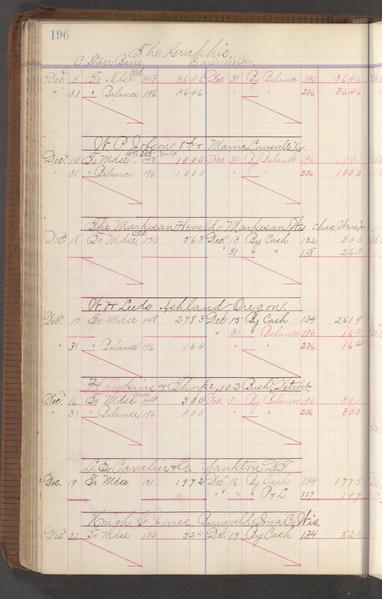 196
The Graphic
Dec. 5 To Mdse 143 3646 Dec 31 By Balance 196 3646
" 31 " Balance 196 3646 " " 236 3646
W. P. Jobson 5th &
Dec. 10 To Mdse 1000 Dec 31 By Balance 196 1000
" 31 " Balance 196 1000 236 1000
The Markesan Herald Markesan Wis
Dec. 18 To Mdse 150 563 Dec. 3 By Cash 132 300
" 31 " " 138 263
W. H. Leeds Ashland Oregon
Dec. 15 To Mdse 148 2783 Dec 15 By Cash 134 2619
" 31 " Balance 196 164
" 31 " Balance 196 164 236 164
Hawkins & 102 Bush Detroit
Dec. 16 To Mdse 300 Dec 31 By Balance 196 300
" 31 " Balance 196 300 " " 236 300
L. E. Cavalier & Co. Yankton D.T.
Dec. 19 To Mdse 151 1972 Dec. 16 By Cash 134 1775
" " " P & L 197
Hugh G Jones Iowa Co. Wis.
Dec. 22 To Mdse 152 524 Dec. 19 By Cash 134 524